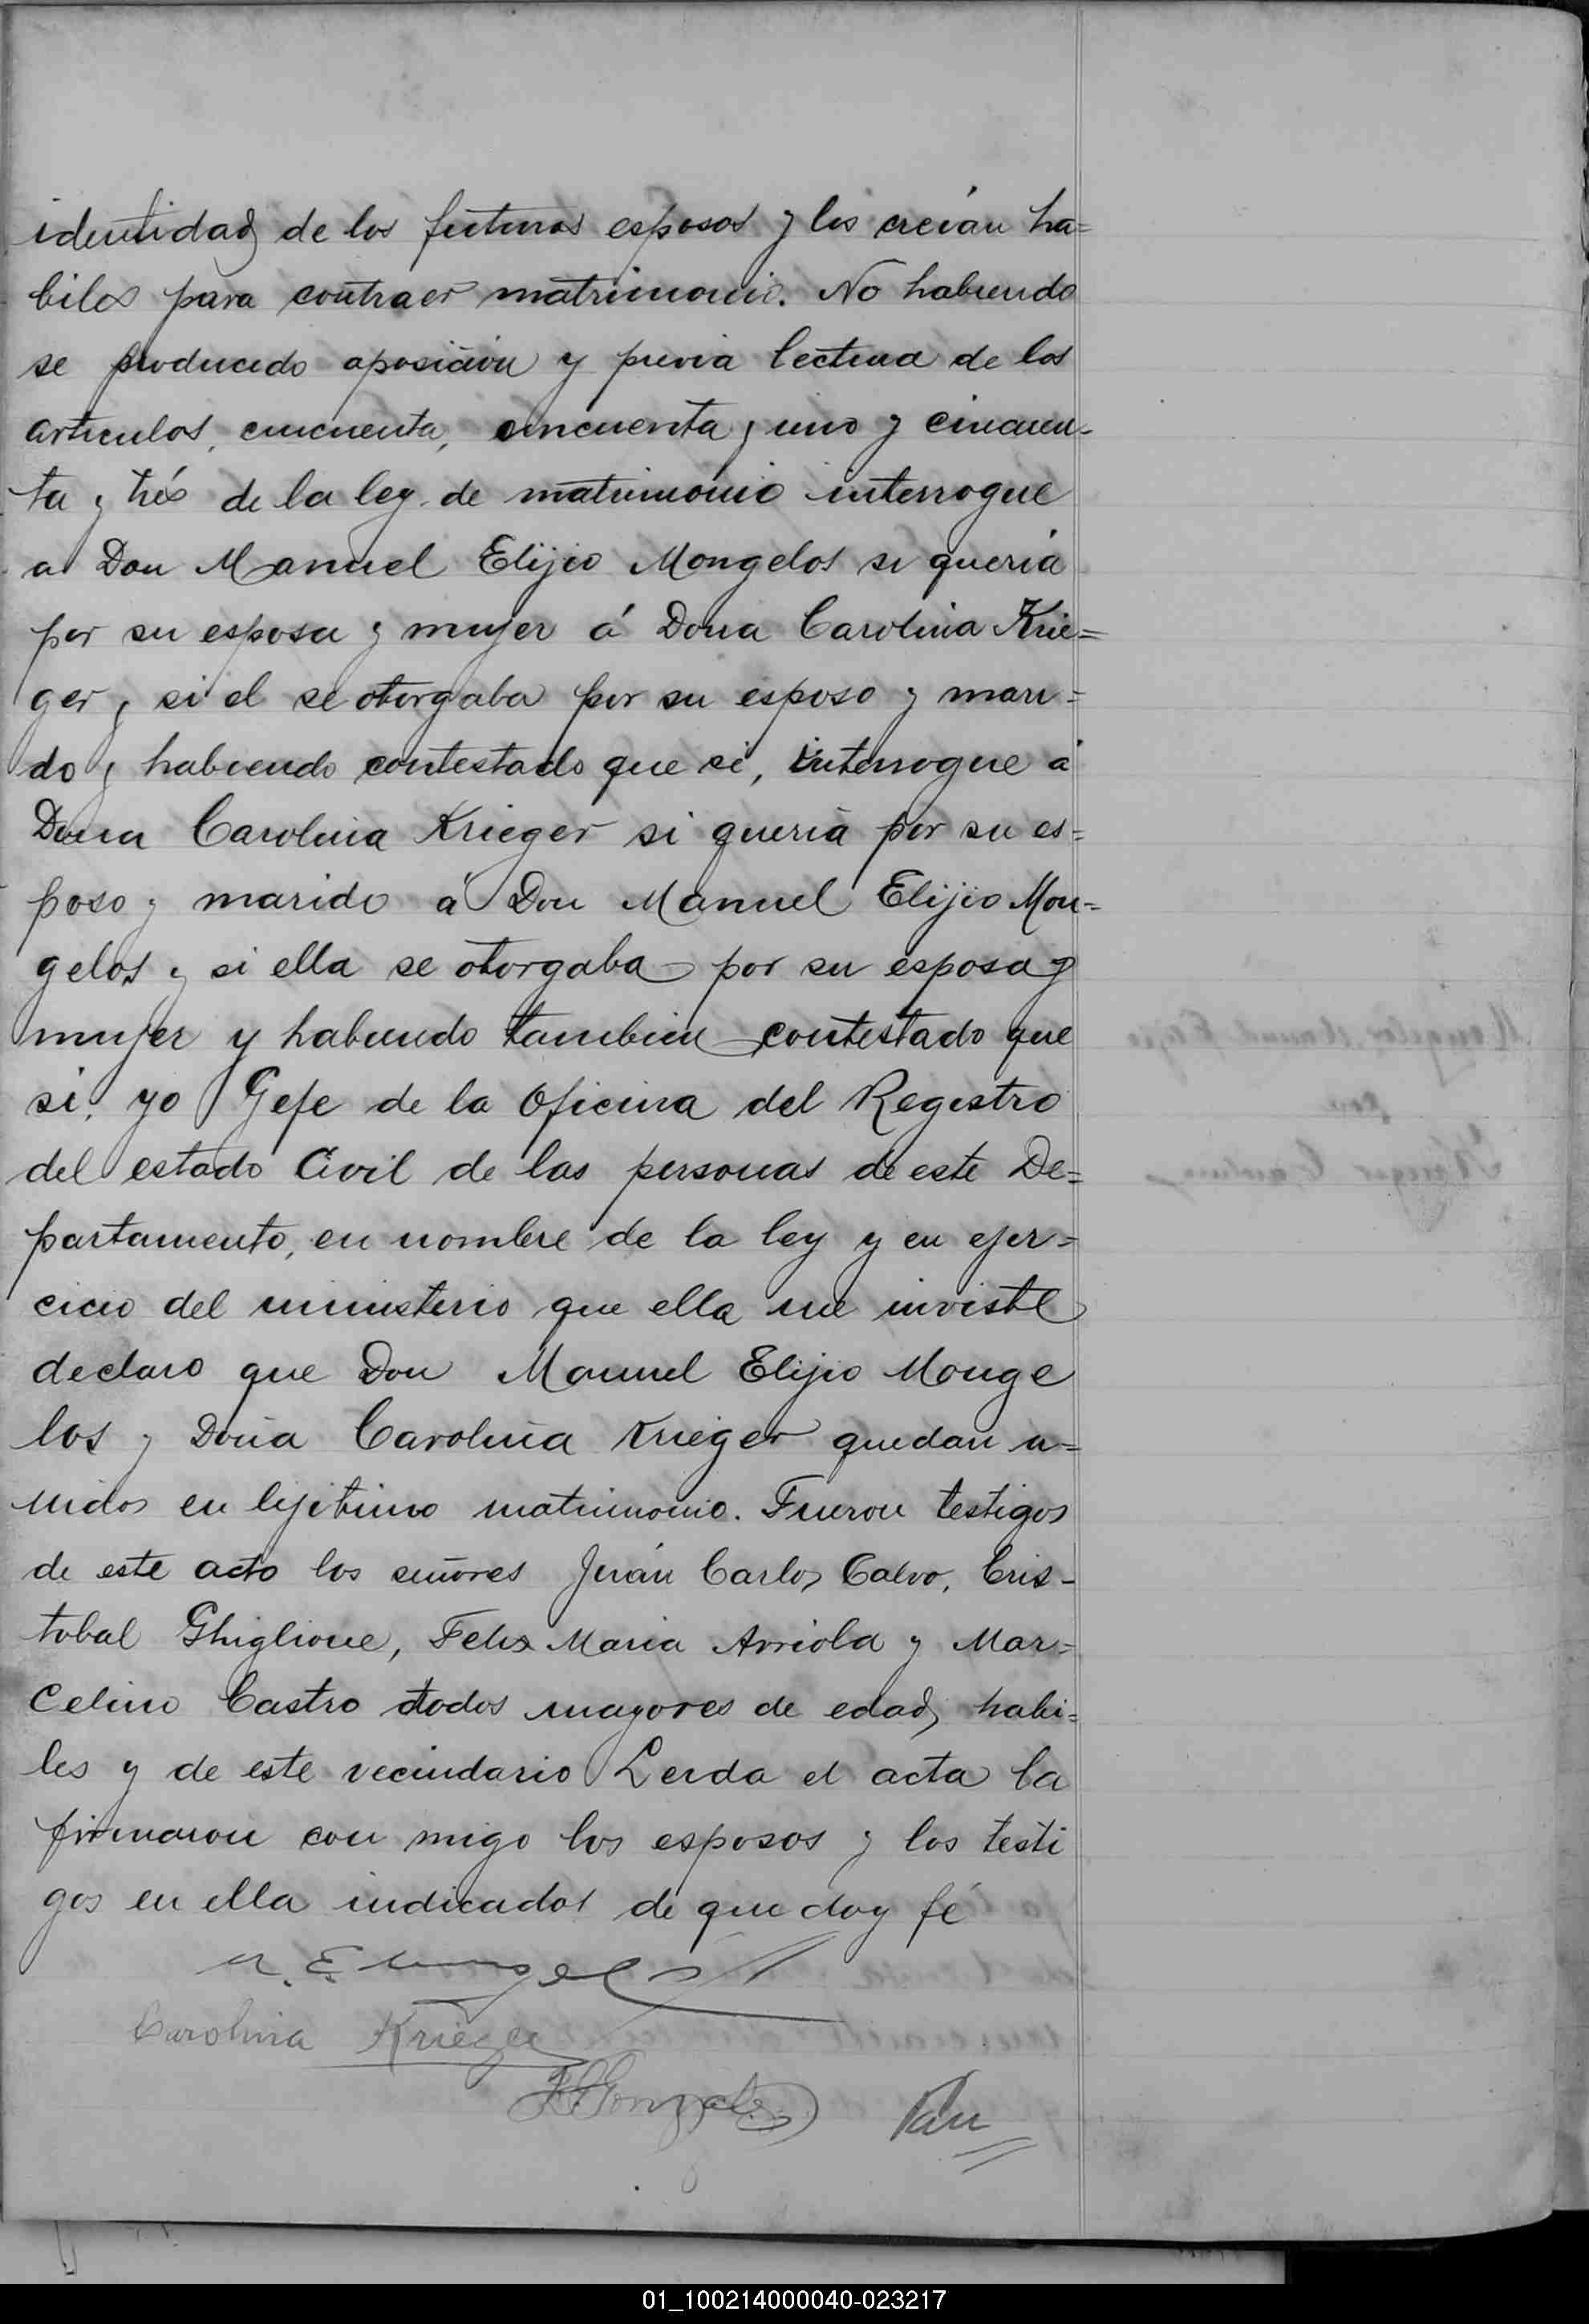 identidad de los futuros esposos y los creían ha=
biles para contraer matrimonio. No habiendo
se producido oposición y previa lectura de los
articulos, cincuenta, cincuenta y uno y cincuen-
ta y trés de la ley de matrimonio interrogue
a Don Manuel Elijio Mongelos si queria
por su esposa y mujer á Dona Carolina Krie=
ger y si el se otorgaba por su esposo y mari=
do y habiendo contestado que si, interrogue á
Dona Carolina Krieger si queria por su es=
poso y marido á Don Manuel Elijio Mon=
gelos y si ella se otorgaba por su esposa y
mujer y habiendo tambien contestado que
si, yo Gefe de la Oficina del Registro
del estado Civil de las personas de este De=
partamento, en nombre de la ley y en ejer=
cicio del ministerio que ella me inviste
declaro que Don Manuel Elijio Monge
los y Doña Carolina Krieger quedan u=
nidos en lejitimo matrimonio. Fueron testigos
de este acto los señores Juán Carlos Calvo, Cris-
tobal Ghiglione, Felix Maria Arriola y Mar=
celino Castro todos mayores de edad, habi=
les y de este vecindario Leida el acta la
firmaron con migo los esposos y los testi
gos en ella indicados de que doy fé
M. E. Mongelos
Carolina Krieger
Gonzalez
01_100214000040-023217